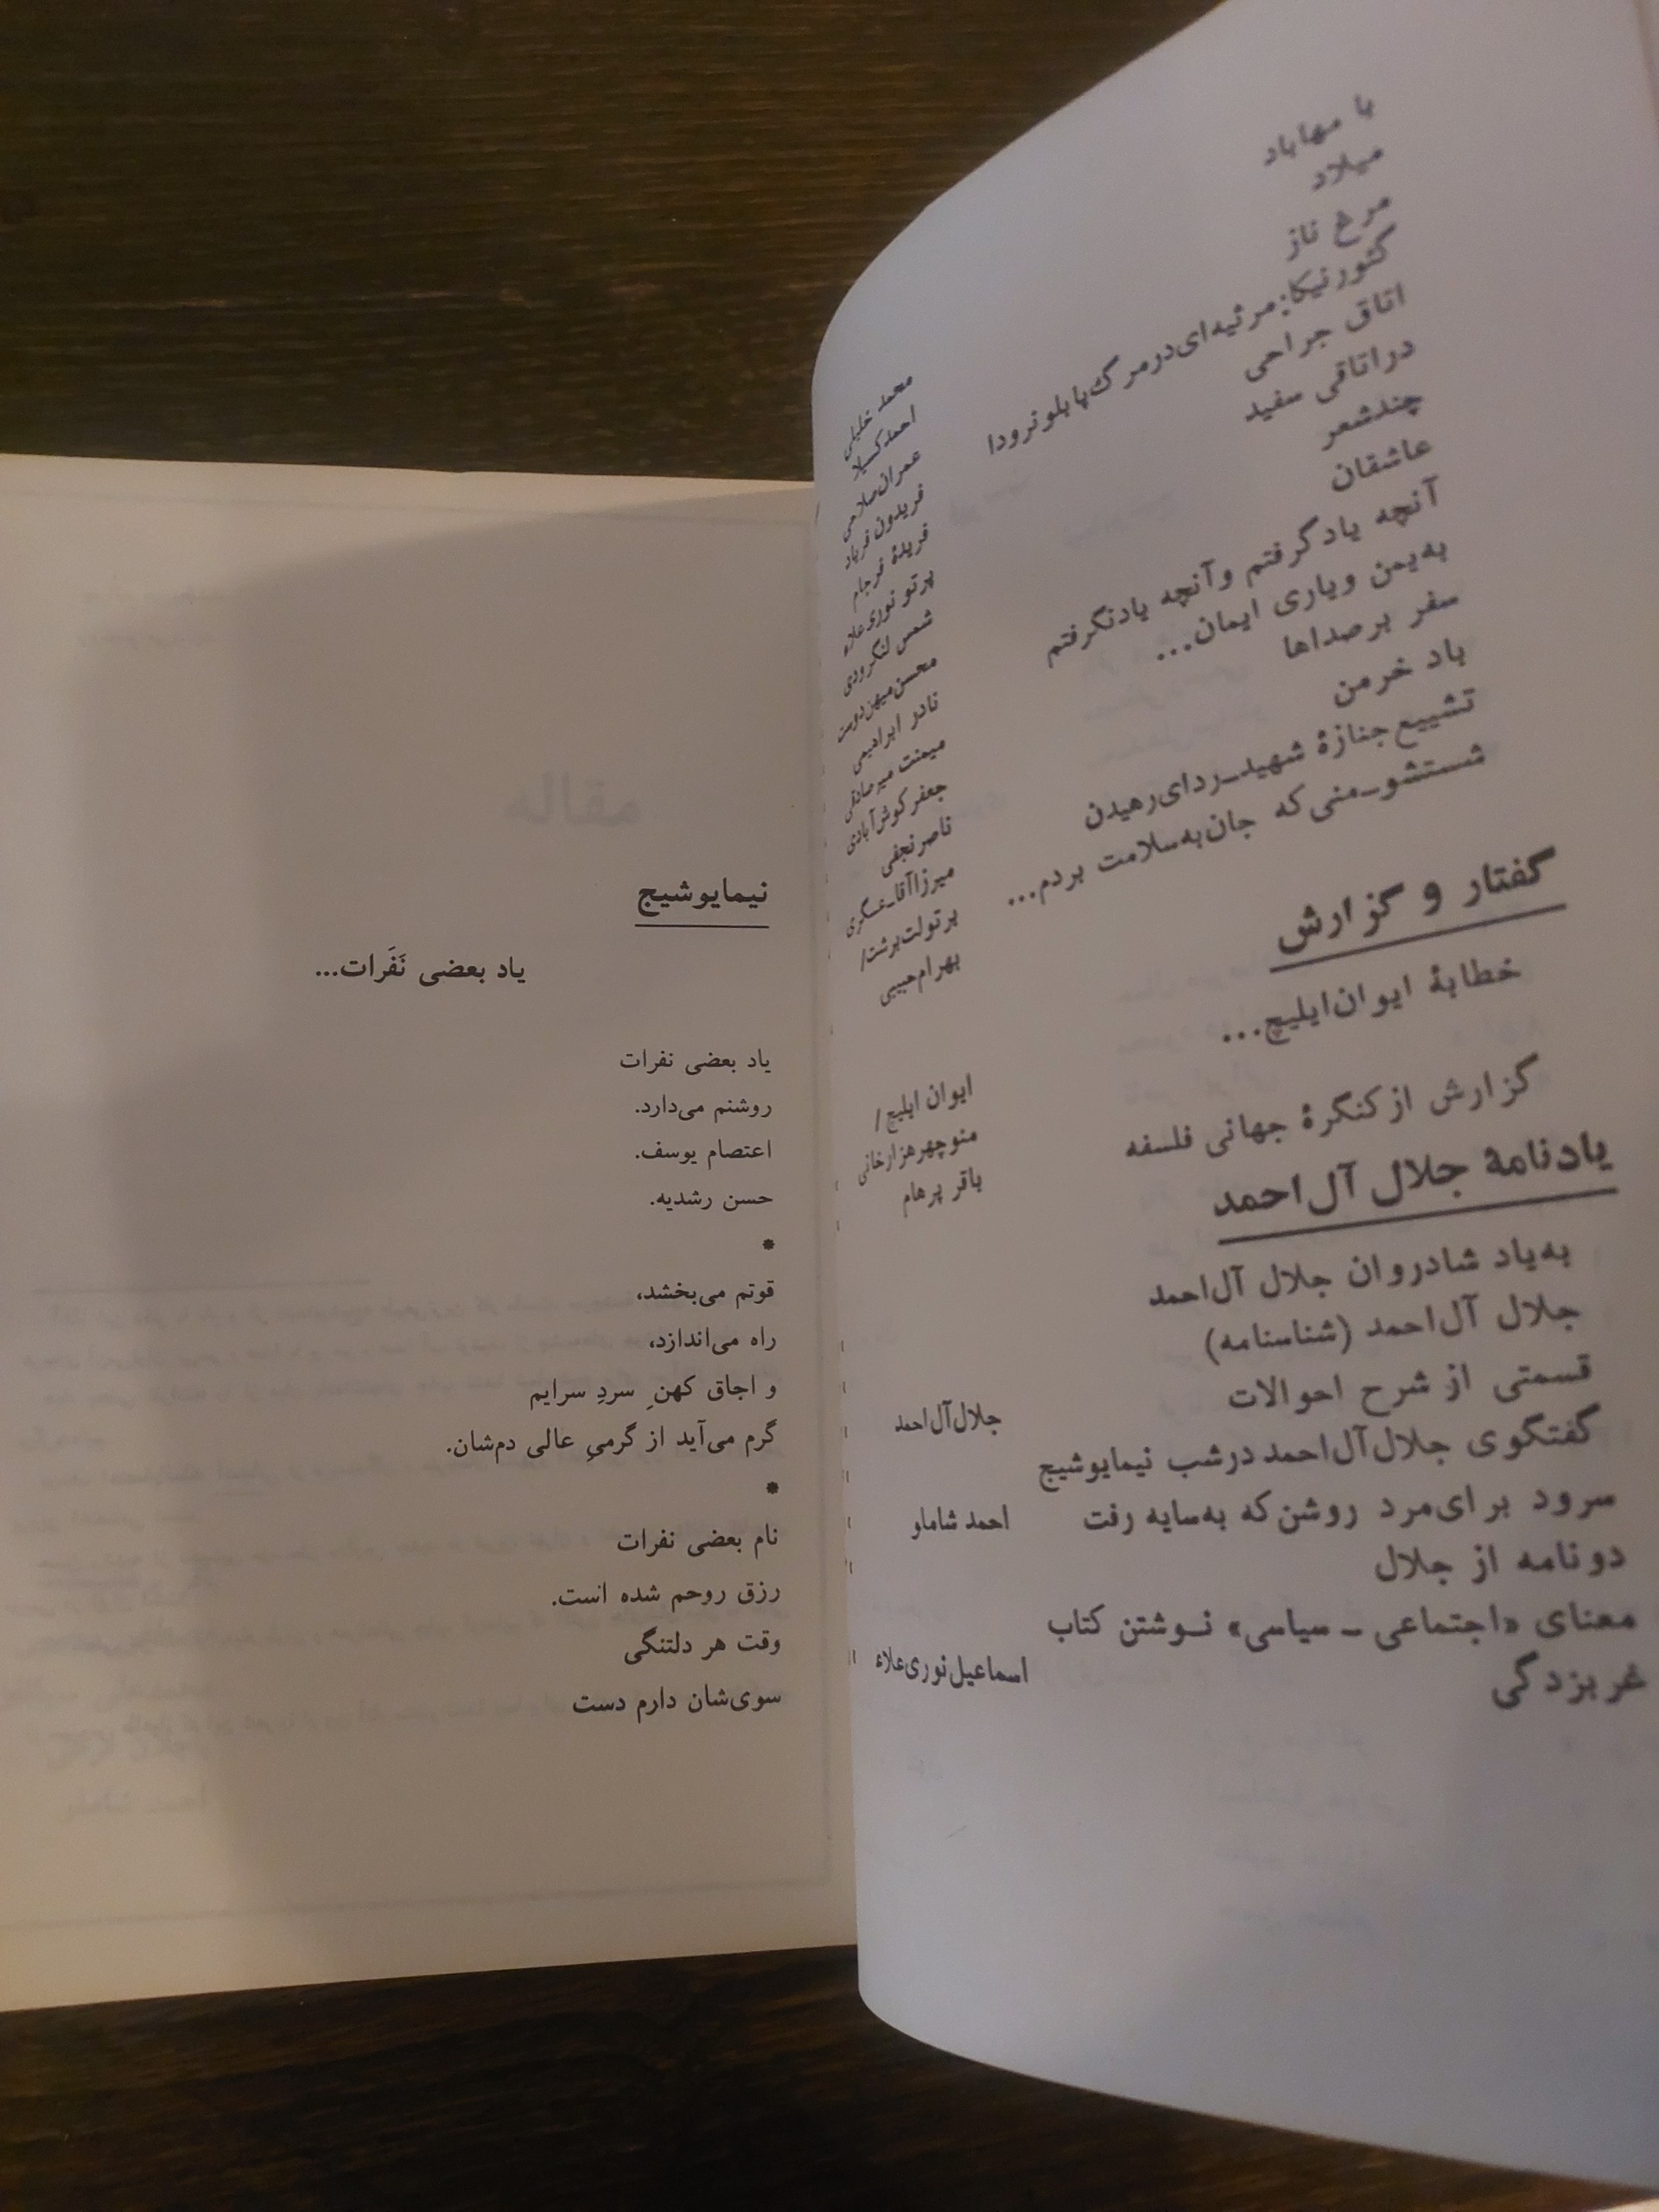 با مهاباد
میلاد
مرغ ناز
گئورنیکا: مرثیه‌ای در مرگ پابلو نرودا
اتاق جراحی
در اتاقی سفید
چند شعر
عاشقان
آنچه یاد گرفتم و آنچه یاد نگرفتم
به‌یمن و یاری ایمان...
سفر بر صداها
باد خرمن
تشییع جنازهٔ شهید ـ ردای رهیدن
شستشو ـ منی که جان به‌سلامت بردم...
محمد خلیلی
احمد کسیلا
عمران صلاحی
فریدون فریاد
فریدهٔ فرجام
پرتو نوری‌علاء
شمس لنگرودی
محسن میهن‌دوست
نادر ابراهیمی
میمنت میرصادقی
جعفر کوش‌آبادی
ناصر نجفی
میرزاآقا ـ عسگری
برتولت برشت/
بهرام حبیبی
گفتار و گزارش
خطابهٔ ایوان ایلیچ...
ایوان ایلیچ/
منوچهر هزارخانی
گزارش از کنگرهٔ جهانی فلسفه
باقر پرهام
یادنامهٔ جلال آل‌احمد
به‌یاد شادروان جلال آل‌احمد
جلال آل‌احمد (شناسنامه)
قسمتی از شرح احوالات
جلال آل‌احمد
گفتگوی جلال آل‌احمد در شب نیمایوشیج
سرود برای مرد روشن که به‌سایه رفت
احمد شاملو
دو نامه از جلال
معنای «اجتماعی ـ سیاسی» نوشتن کتاب
غربزدگی
اسماعیل نوری‌علاء
نیمایوشیج
یاد بعضی نَفَرات...
یاد بعضی نفرات
روشنم می‌دارد.
اعتصام یوسف.
حسن رشدیه.
*
قوتم می‌بخشد،
راه می‌اندازد،
و اجاق کهنِ سردِ سرایم
گرم می‌آید از گرمیِ عالی دم‌شان.
*
نام بعضی نفرات
رزق روحم شده است.
وقت هر دلتنگی
سوی‌شان دارم دست